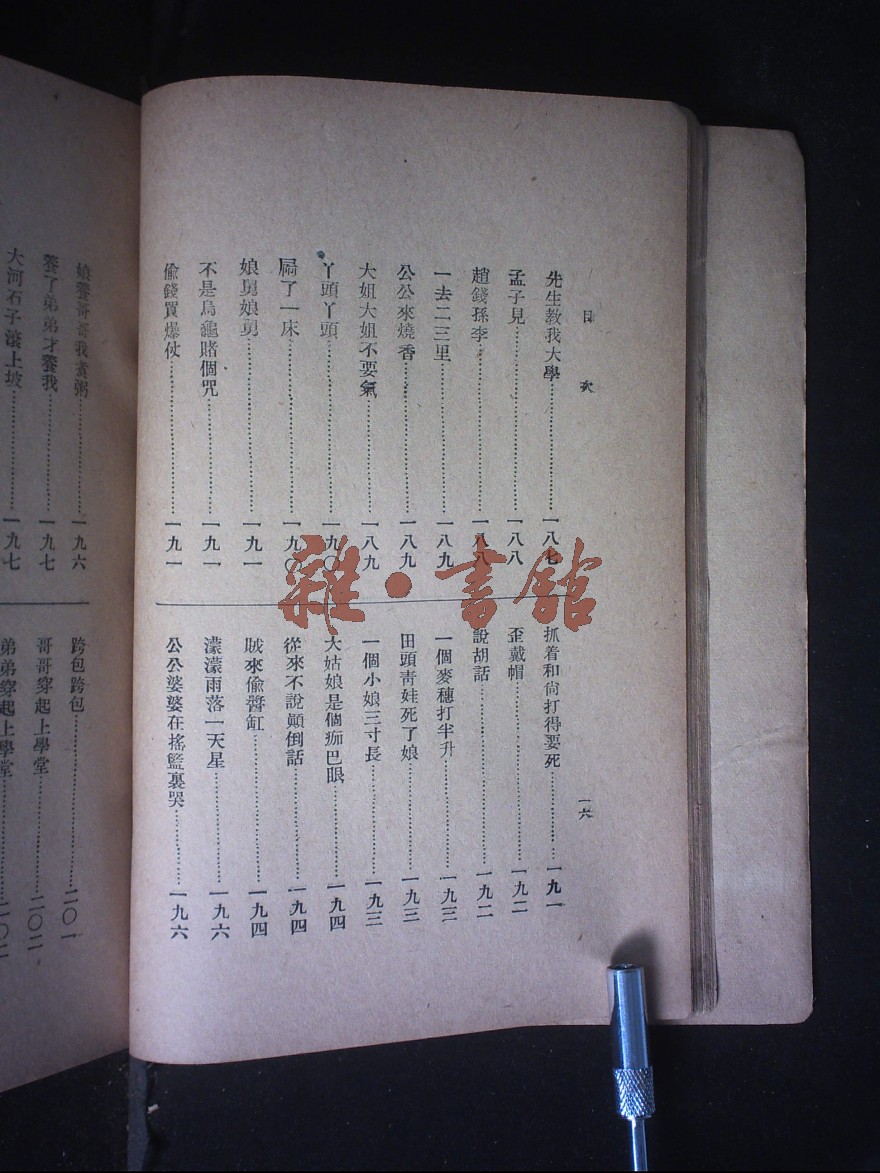 目次
一六
先生教我大學…………一八七
孟子見…………一八八
趙錢孫李…………一八八
一去二三里…………一八九
公公來燒香…………一八九
大姐大姐不要氣…………一八九
丫頭丫頭…………一九〇
屙了一床…………一九〇
娘舅娘舅…………一九一
不是烏龜賭個咒…………一九一
偷錢買爆仗…………一九一
抓着和尙打得要死…………一九一
歪戴帽…………一九二
說胡話…………一九二
一個麥穗打半升…………一九三
田頭靑娃死了娘…………一九三
一個小娘三寸長…………一九三
大姑娘是個痂巴眼…………一九四
從來不說顚倒話…………一九四
賊來偷醬缸…………一九四
濛濛雨落一天星…………一九六
公公婆婆在搖籃裏哭…………一九六
娘養哥哥我煮粥…………一九六
養了弟弟才養我…………一九七
大河石子滾上坡…………一九七
跨包跨包…………二〇一
哥哥穿起上學堂…………二〇二
弟弟穿起上學堂…………二〇二
雜·書館